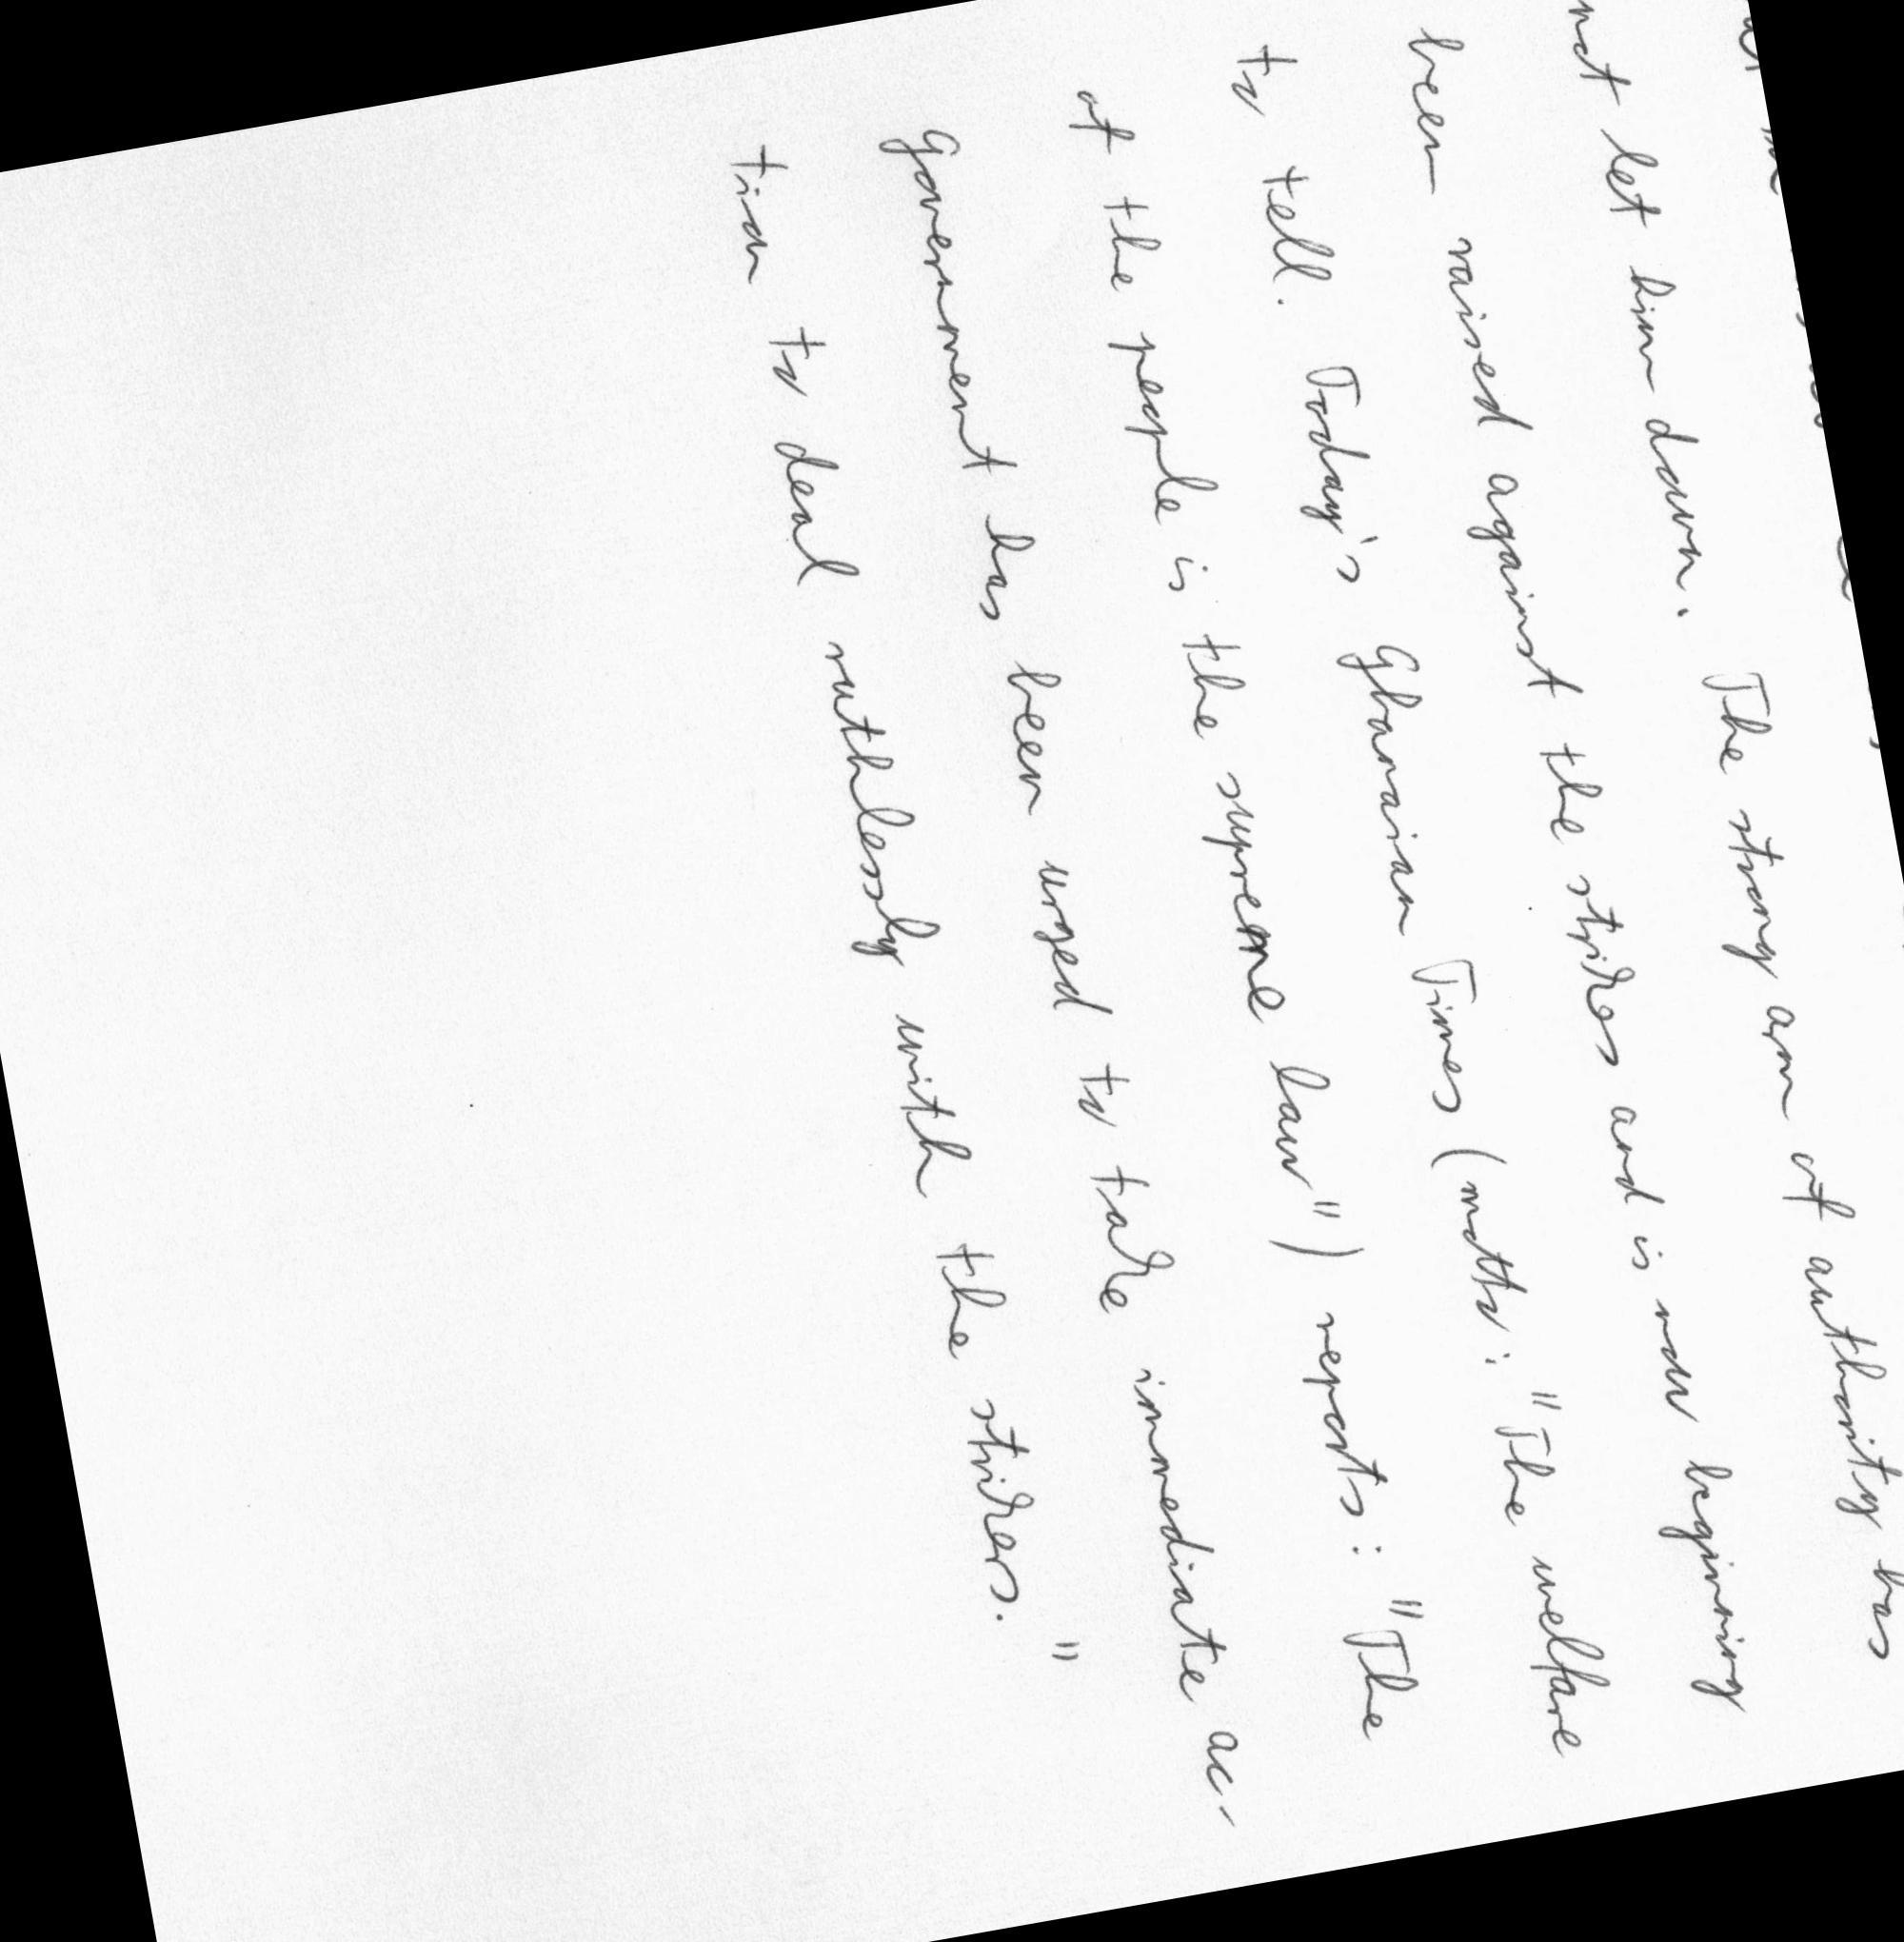 not let him down. The strong arm of authority has
been raised against the strikes and is now beginning
to tell. Today's Ghanaian Times (motto: "The welfare
of the people is the supreme law") reports: "The
Government has been urged to take immediate ac-
tion to deal ruthlessly with the strikers."